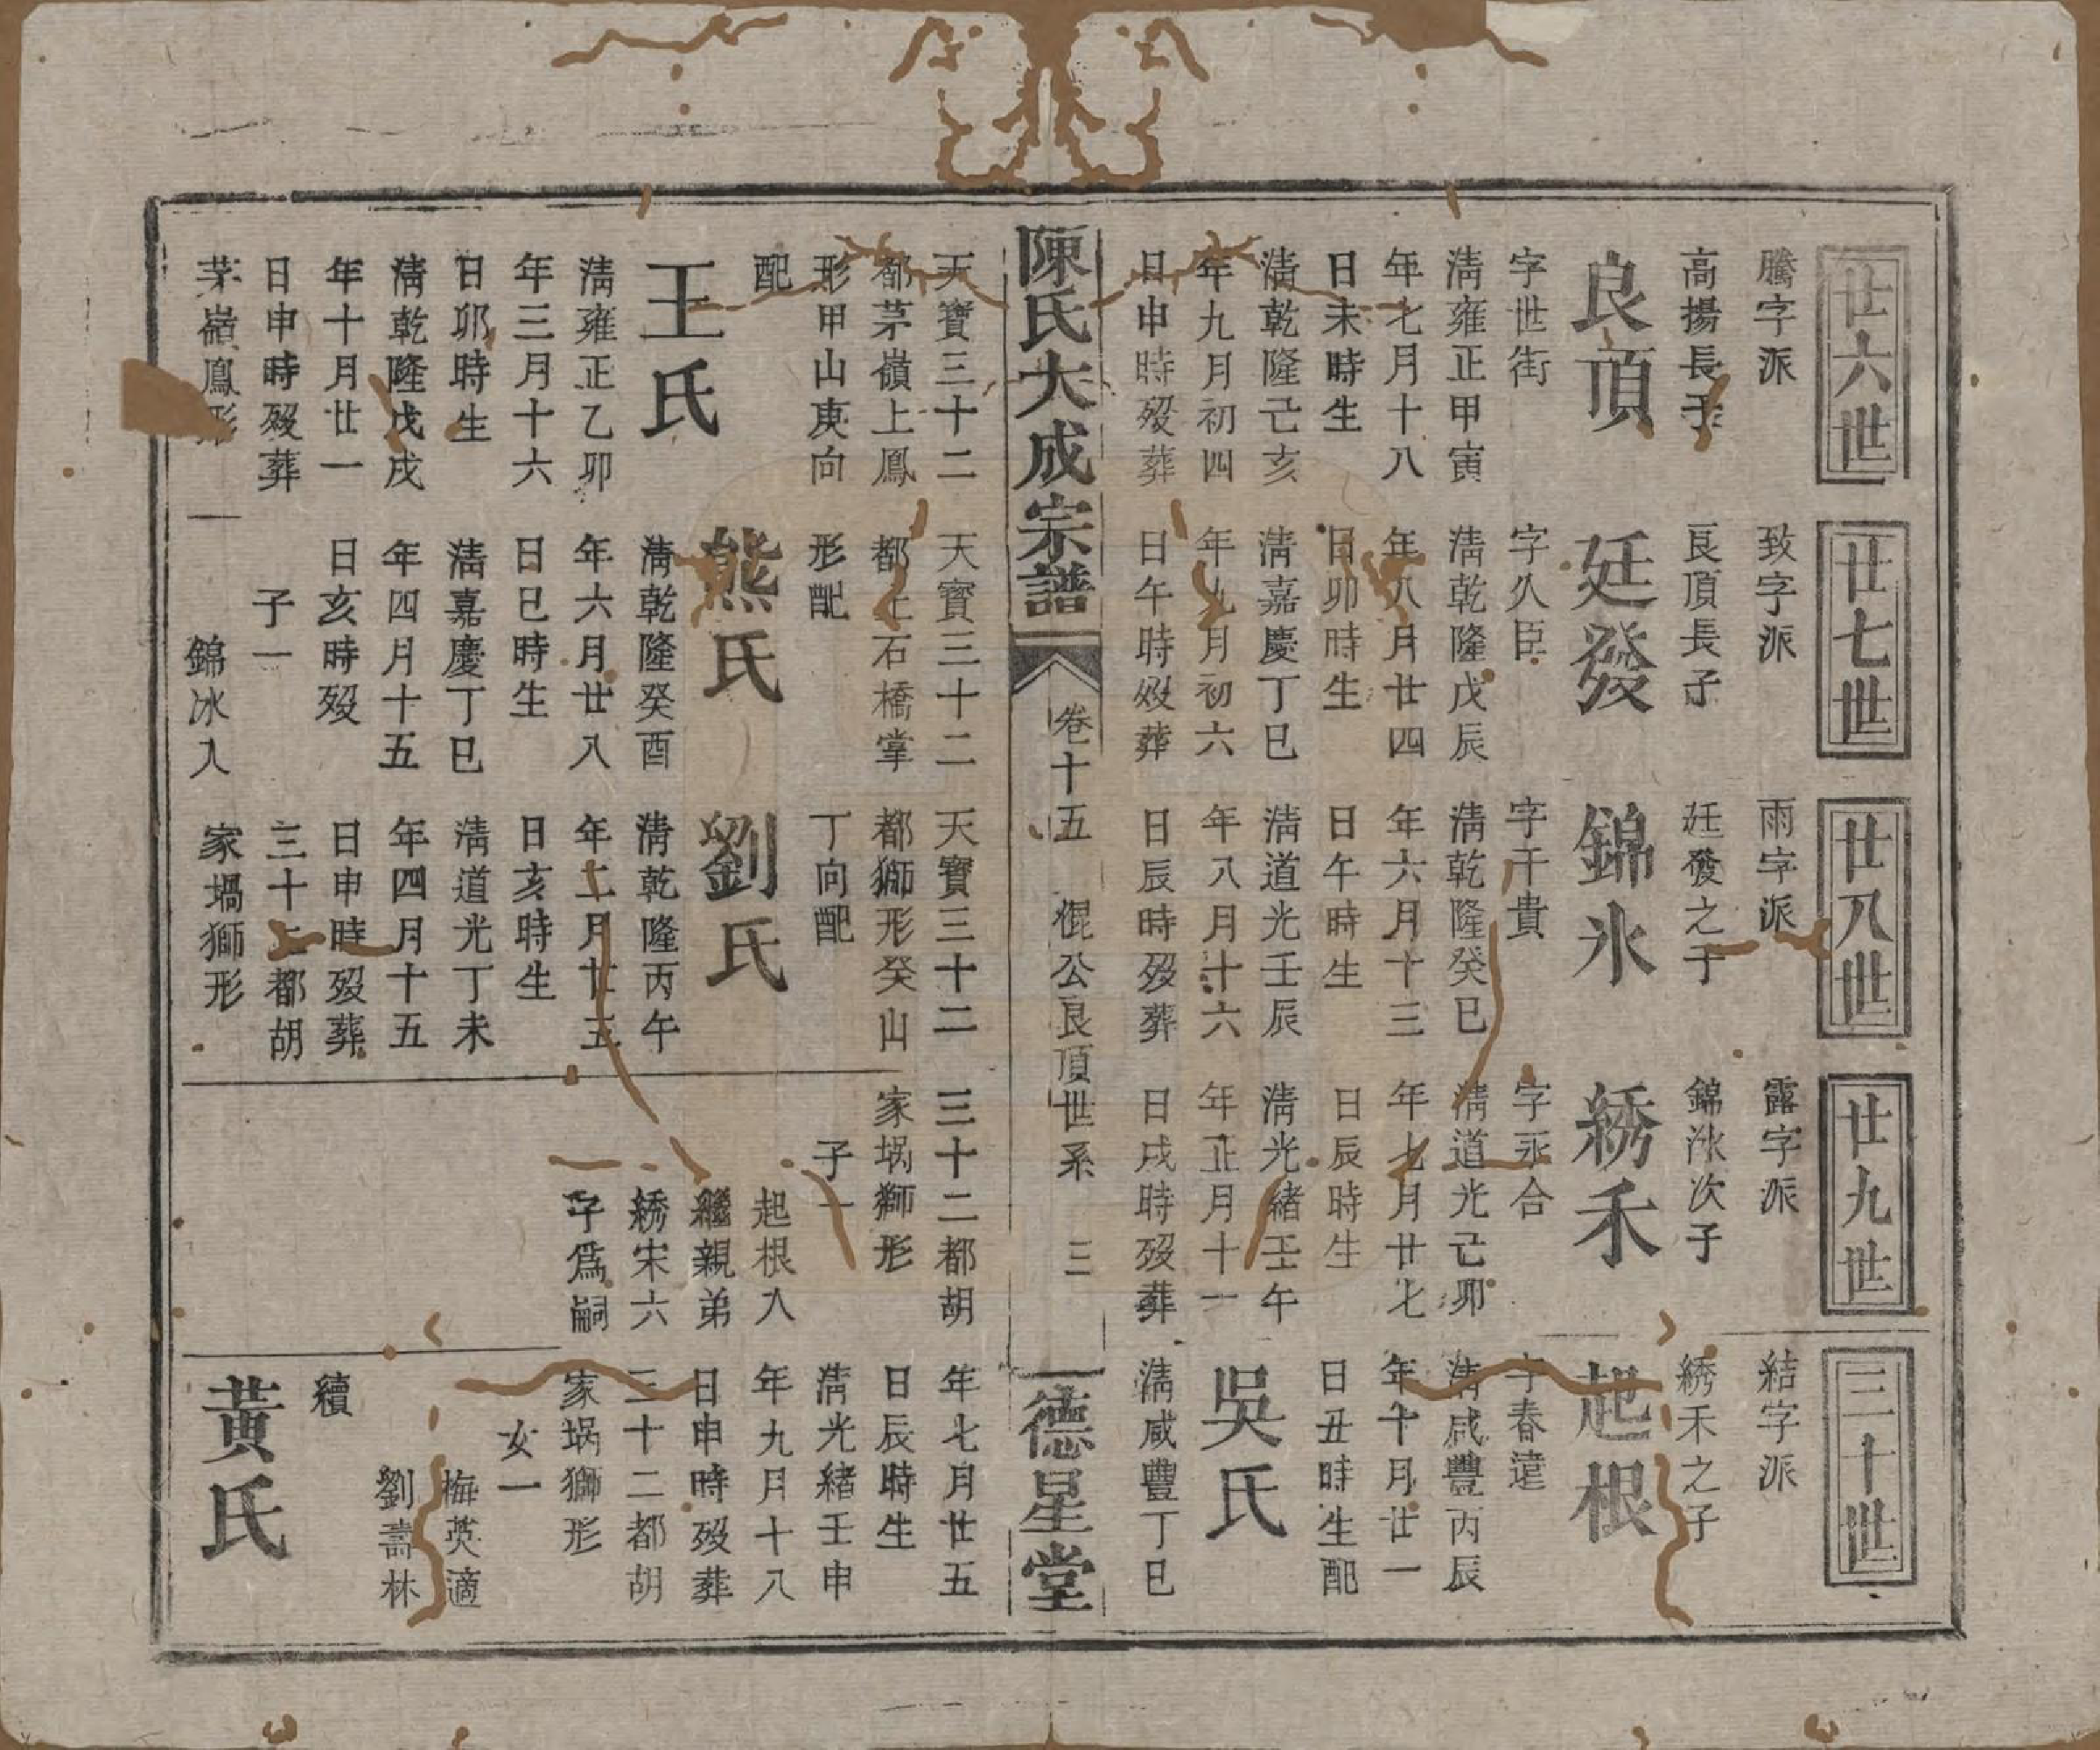 廿六世
騰字派
高揚長子
良頂
字世街
淸雍正甲寅
年七月十八
日未時生
淸乾隆己亥
年九月初四
日申時殁葬
天寶三十二
都茅嶺上鳳
形甲山庚向
配
王氏
淸雍正乙卯
年三月十六
日卯時生
淸乾隆戊戌
年十月廿一
日申時殁葬
茅嶺鳳形
廿七世
致字派
良頂長子
廷發
字久臣
淸乾隆戊辰
年八月廿四
日卯時生
淸嘉慶丁巳
年九月初六
日午時殁葬
天寶三十二
都上石橋掌
形配
熊氏
淸乾隆癸酉
年六月廿八
日巳時生
淸嘉慶丁巳
年四月十五
日亥時殁
子一
錦冰入
廿八世
雨字派
廷發之子
錦氷
字干貴
淸乾隆癸巳
年六月十三
日午時生
淸道光壬辰
年八月十六
日辰時殁葬
天寶三十二
都獅形癸山
丁向配
劉氏
淸乾隆丙午
年二月廿五
日亥時生
淸道光丁未
年四月十五
日申時殁葬
三十二都胡
家堝獅形
廿九世
露字派
錦冰次子
綉禾
字永合
淸道光己卯
年七月廿七
日辰時生
淸光緒壬午
年正月十一
日戌時殁葬
三十二都胡
家堝獅形
子一
起根入
繼親弟
綉宋六
子爲嗣
三十世
結字派
綉禾之子
起根
字春遠
淸咸豐丙辰
年十月廿一
日丑時生配
吳氏
淸咸豐丁巳
年七月廿五
日辰時生
淸光緒壬申
年九月十八
日申時殁葬
三十二都胡
家堝獅形
女一
梅英適
劉壽林
續
黃氏
陳氏大成宗譜
卷十五
棍公良頂世系
三
德星堂